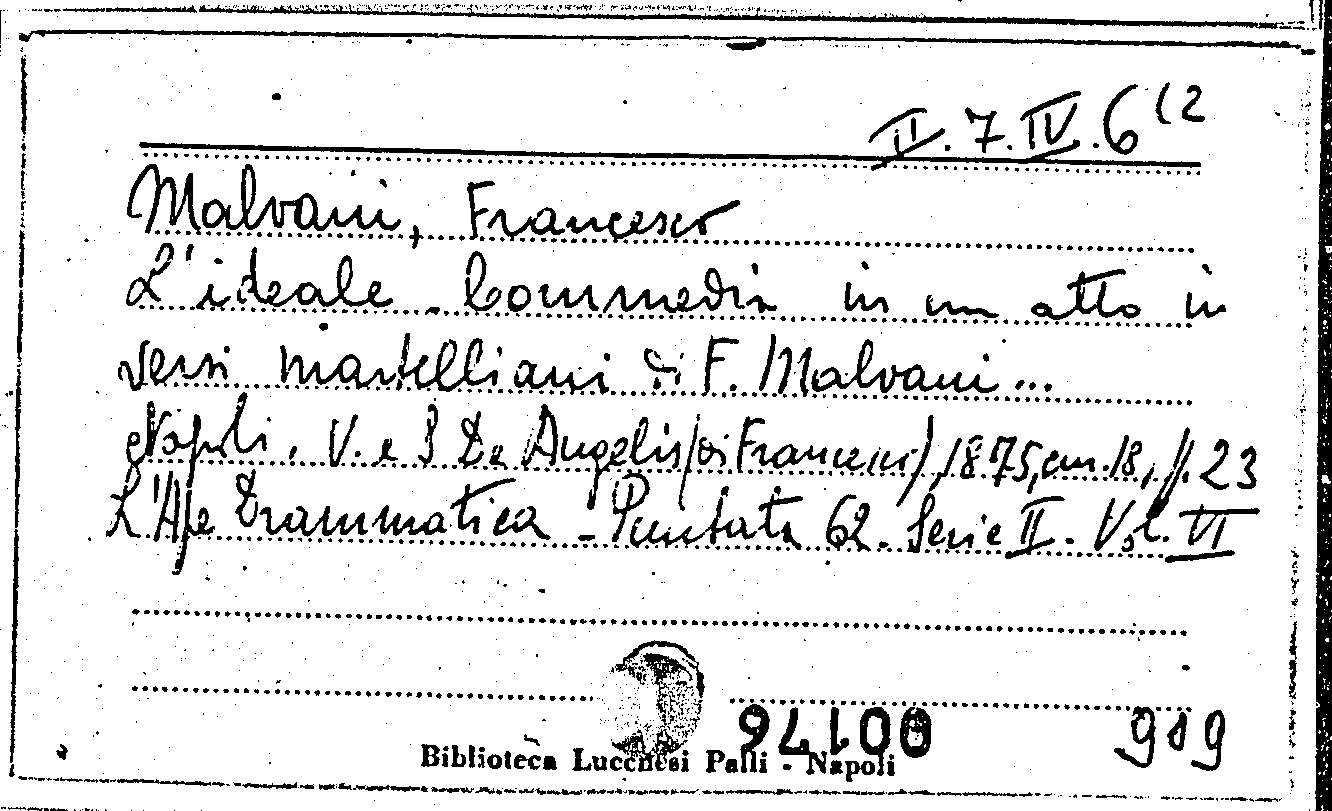 II.7.IV.6(2
Malvani, Francesco
L'ideale. Commedia in un atto in
versi martelliani di F. Malvani...
Napoli, V. e S De Angelis (di Francesco), 1875, cm. 18, p. 23
L'Ape Drammatica - Puntata 62. Serie II. Vol. VI
00176
Biblioteca Lucchesi Palli - Napoli